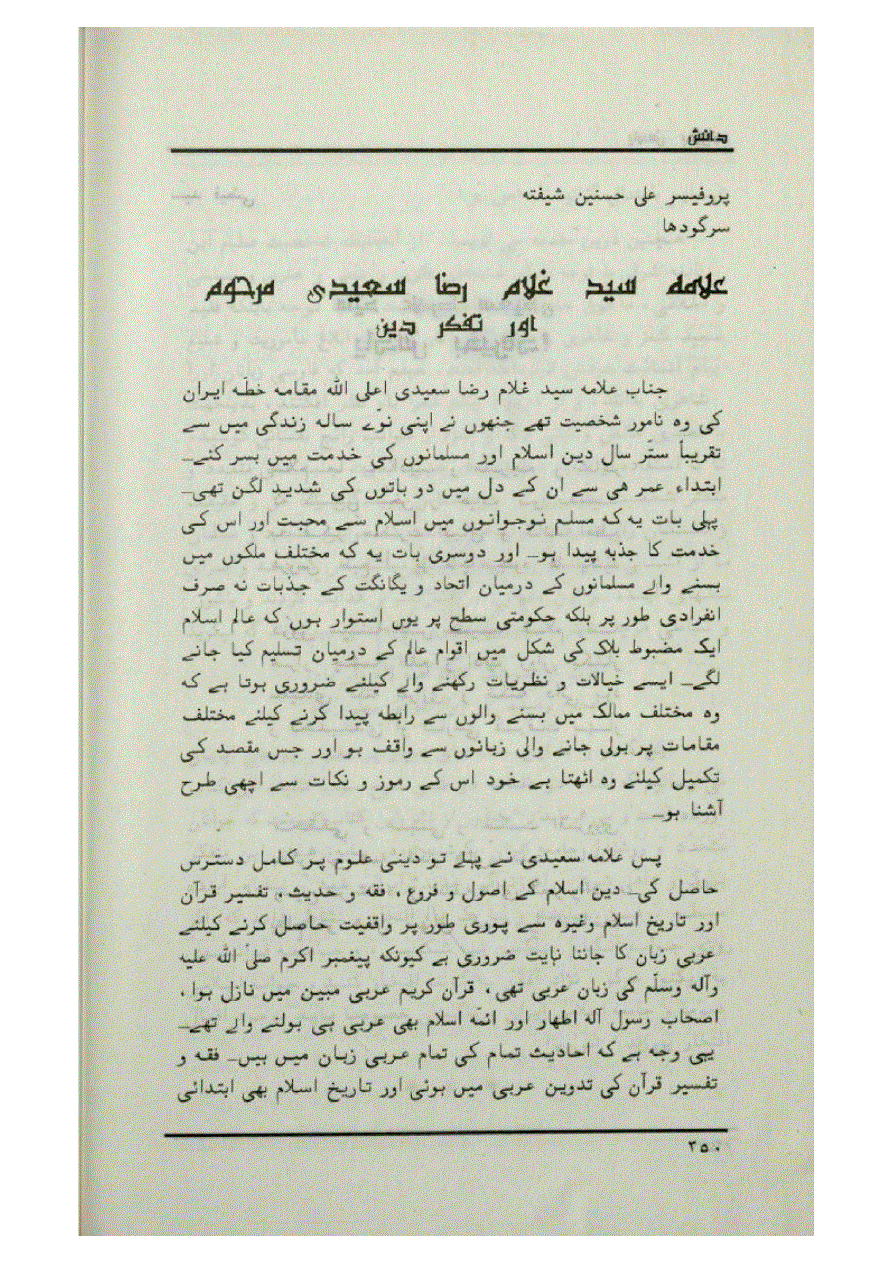 دانش
پروفیسر علی حسنین شیفته
سرگودها
علامه سید غلام رضا سعیدی مرحوم
اور تفکر دین
جناب علامه سید غلام رضا سعیدی اعلی الله مقامه خطّه ایران
کی وه نامور شخصیت تھے جنھوں نے اپنی نوّے ساله زندگی میں سے
تقریباً ستّر سال دین اسلام اور مسلمانوں کی خدمت میں بسر کئے۔
ابتداء عمر هی سے ان کے دل میں دو باتوں کی شدید لگن تھی۔
پہلی بات یه که مسلم نوجوانوں میں اسلام سے محبت اور اس کی
خدمت کا جذبه پیدا ہو۔ اور دوسری بات یه که مختلف ملکوں میں
بسنے والے مسلمانوں کے درمیان اتحاد و یگانگت کے جذبات نه صرف
انفرادی طور پر بلکه حکومتی سطح پر یوں استوار ہوں که عالم اسلام
ایک مضبوط بلاک کی شکل میں اقوام عالم کے درمیان تسلیم کیا جانے
لگے۔ ایسے خیالات و نظریات رکھنے والے کیلئے ضروری ہوتا ہے که
وه مختلف ممالک میں بسنے والوں سے رابطه پیدا کرنے کیلئے مختلف
مقامات پر بولی جانے والی زبانوں سے واقف ہو اور جس مقصد کی
تکمیل کیلئے وه اٹھتا ہے خود اس کے رموز و نکات سے اچھی طرح
آشنا ہو۔
پس علامه سعیدی نے پہلے تو دینی علوم پر کامل دسترس
حاصل کی۔ دین اسلام کے اصول و فروع، فقه و حدیث، تفسیر قرآن
اور تاریخ اسلام وغیره سے پوری طور پر واقفیت حاصل کرنے کیلئے
عربی زبان کا جاننا نہایت ضروری ہے کیونکه پیغمبر اکرم صلیّ الله علیه
وآله وسلّم کی زبان عربی تھی، قرآن کریم عربی مبین میں نازل ہوا،
اصحاب رسول آله اطهار اور ائمّه اسلام بھی عربی ہی بولنے والے تھے۔
یہی وجه ہے که احادیث تمام کی تمام عربی زبان میں ہیں۔ فقه و
تفسیر قرآن کی تدوین عربی میں ہوئی اور تاریخ اسلام بھی ابتدائی
۲۵۰